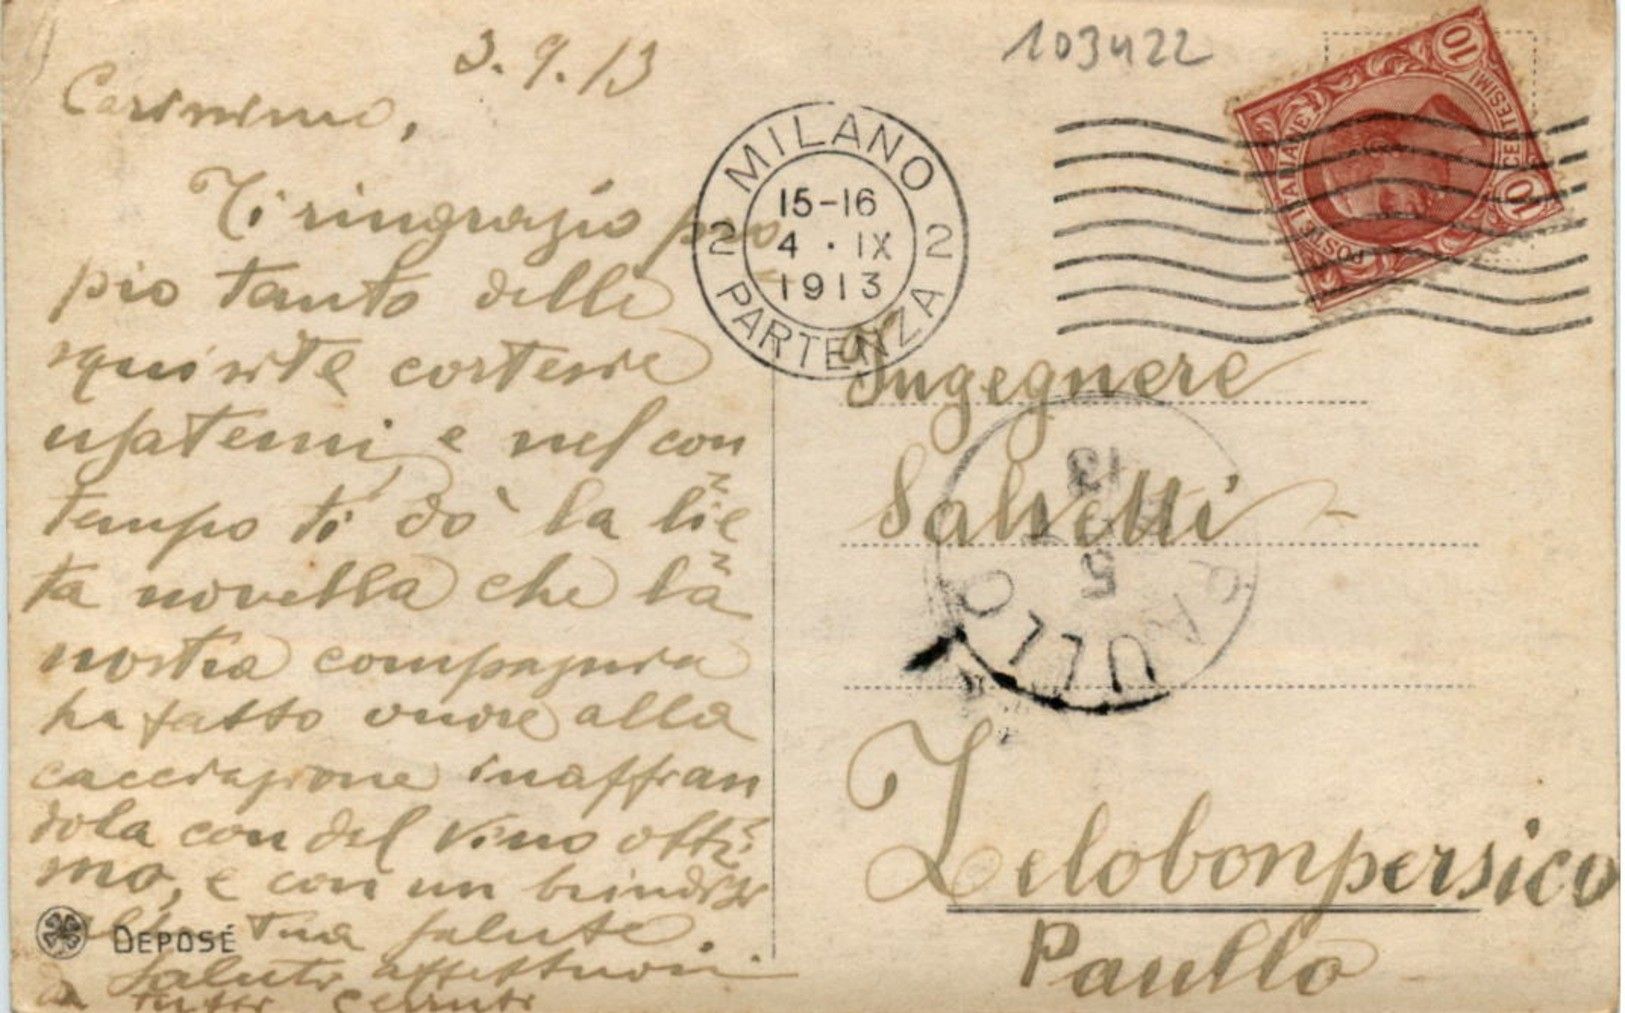 3.9.13
103422
Carissimo,
Ti ringrazio pro
pio tanto delle
squisite cortesie
usatemi, e nel con
tempo ti dò la lie
ta novella che la
nostra compagnia
ha fatto onore alla
cacciagione inaffian
dola con del vino otti
mo, e con un brindisi
alla tua salute.
Saluti affettuosi
a tutti
DEPOSÉ
MILANO
15-16
2 4 · IX 2
1913
PARTENZA
POSTE ITALIANE
CENTESIMI
10
10
Ingegnere
Salvetti
Zelobonpersico
Paullo
PAULLO
5
13